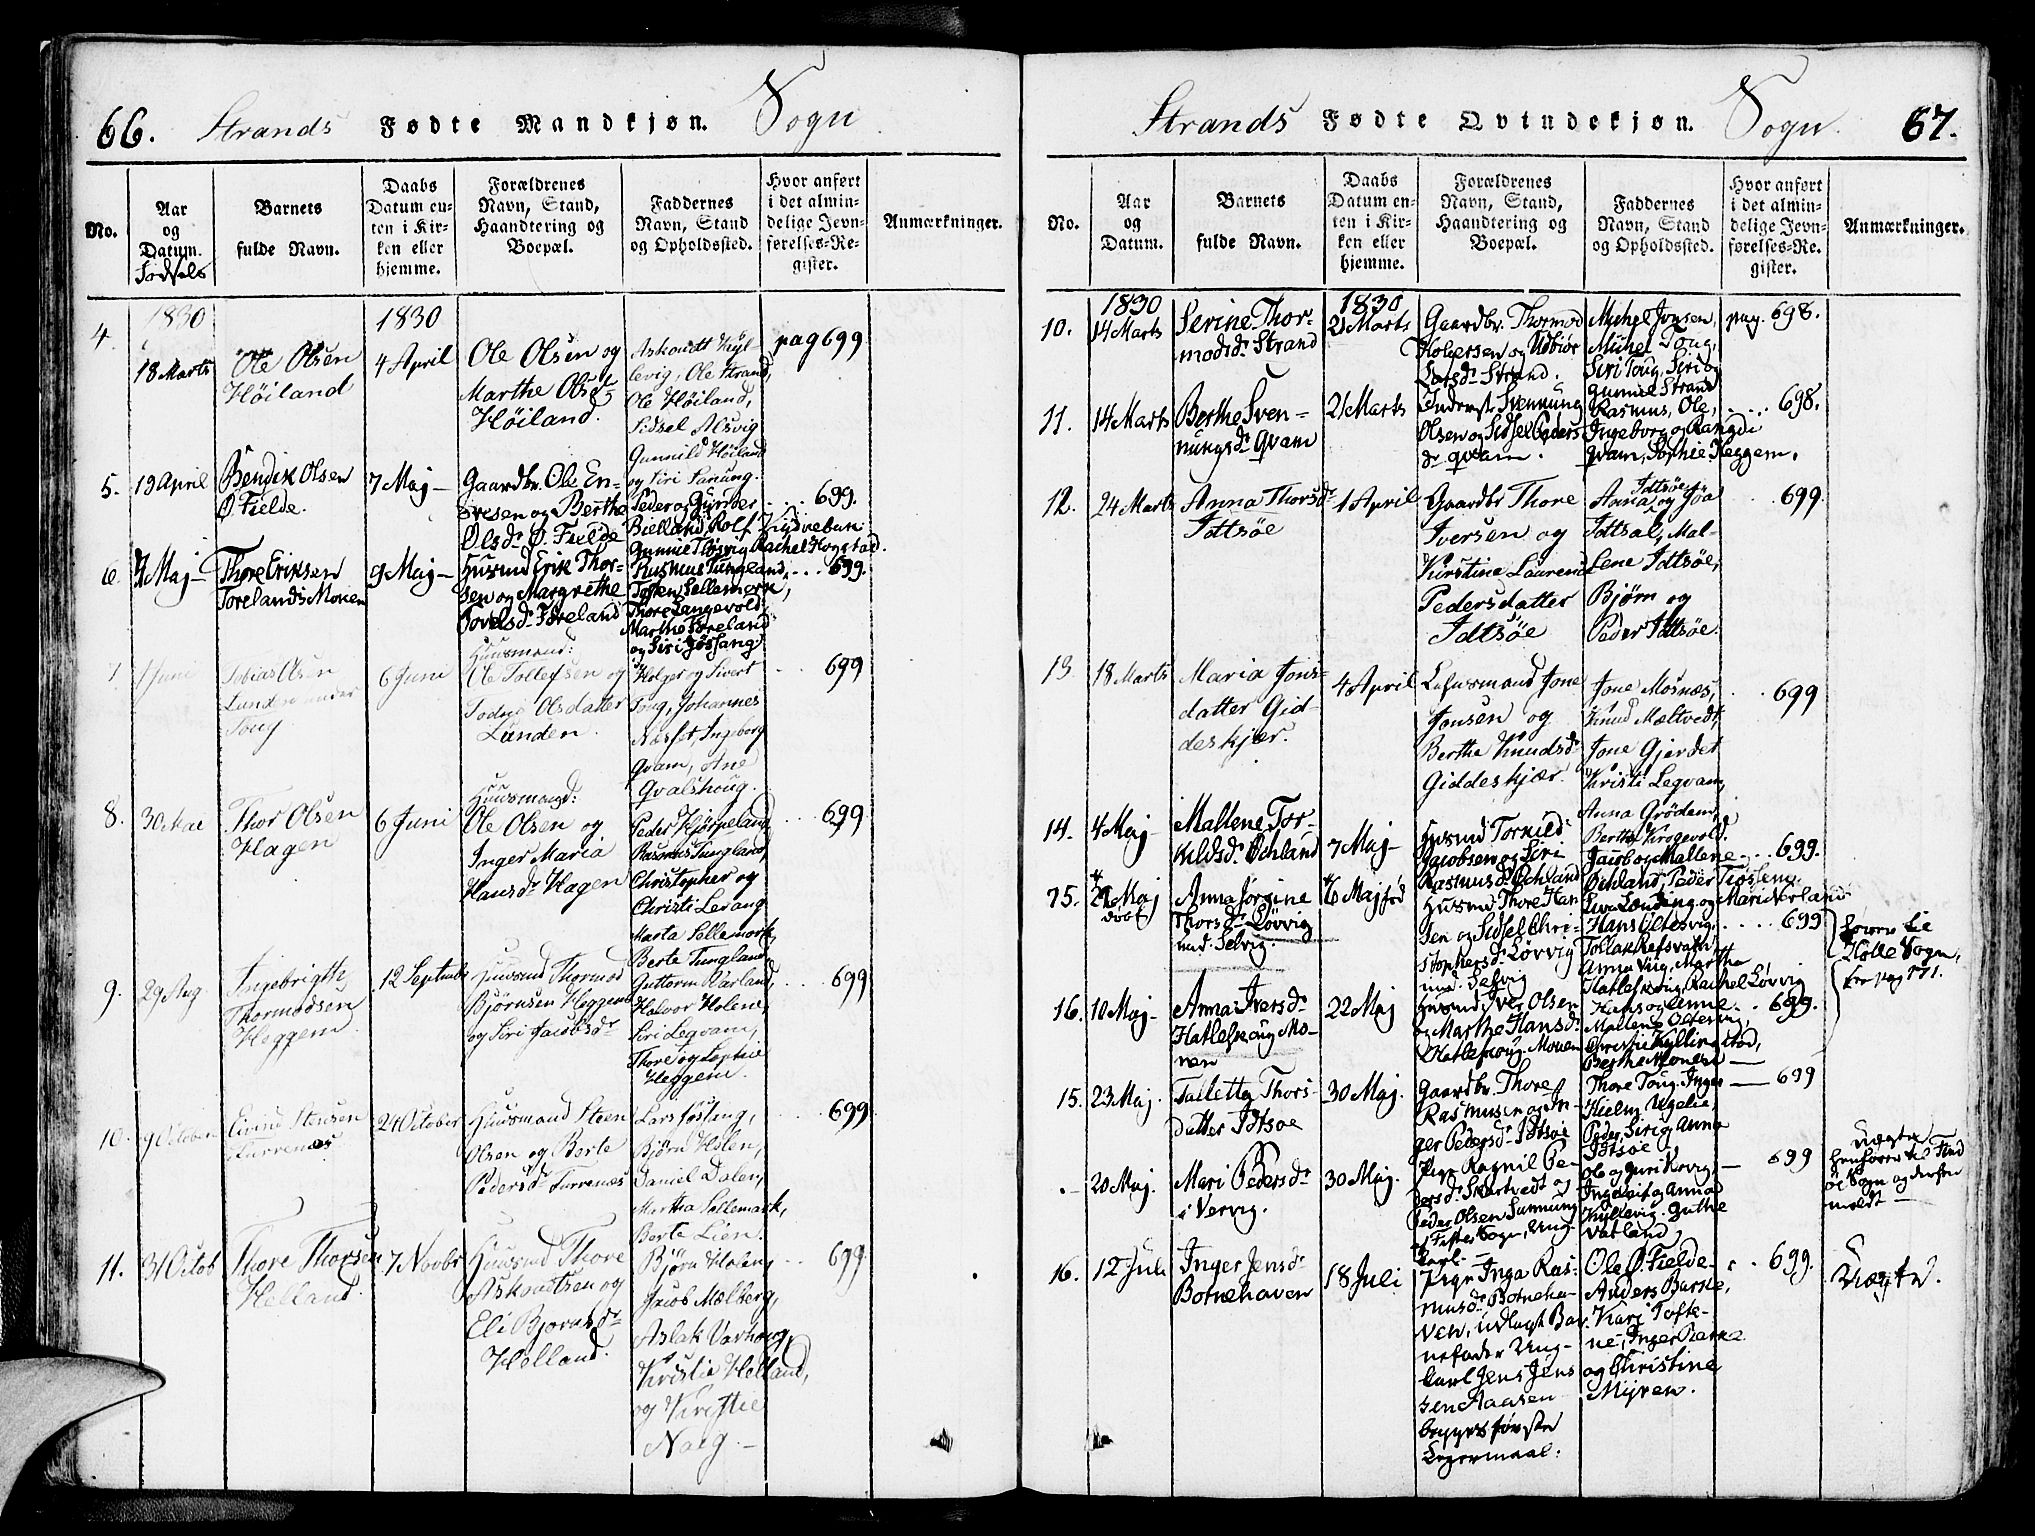 66. Strands Fødte Mandkjøn. Sogn
No.
Aar
og
Datum.
Fødsels
Barnets
fulde Navn.
Daabs
Datum en-
ten i Kir-
ken eller
hjemme.
Forældrenes
Navn, Stand,
Haandtering og
Boepæl.
Faddernes
Navn, Stand
og Opholdssted.
Hvor anført
i det almin-
delige Jevn-
førelses-Re-
gister.
Anmærkninger.
4.
1830
18 Marts
Ole Olsen
Høiland
1830
4 April
Ole Olsen og
Marthe Olsdr
Høiland.
Askoudt Kyl-
levig, Ole Strand,
Ole Høiland,
Sidsel Alsvig
Gunnild Høiland
og Siri
pag 699
5.
19 April
Bendik Olsen
Ø. Fielde.
7 Maj
Gaardbr. Ole En-
og Berthe
Olsdr Ø. Fielde
Peder og
Bielland, Rolf
Gunnil Rachel Hogstad.
699.
6.
4 Maj
Thore Eriksen
Torelands Monen
9 Maj
Husmd Erik Thor-
sen og Margrethe
Toreland
Rasmus Tungland,
Tosten Sellemork,
Thore Langevold,
Marthe Toreland
og Siri Jøssang
699.
7
1 Juni
Tobias Olsen
Lunden under
Toug
6 Juni
Huusmand:
Ole Tollefsen og
Olsdatter
Lunden.
Holger og Sivert
Toug, Johannes
Næsset, Ingeborg
Qvam, Ane
Qvalshoug.
699
8.
30 Mai
Thor Olsen
Hagen
6 Juni
Huusmand:
Ole Olsen og
Inger Maria
Hansdr Hagen
Peder Hjørpeland
Rasmus Tungland,
Christopher og
Christi Lerang
Marta Sellemork,
Berte Tungland
699
9.
29 Aug.
Ingebrigtte
Thormodsen
Heggem.
12 Septembr
Huusmd Thormod
Bjørnsen Heggem
og Siri Jacobsdr
Guttorm Rarland,
Halvor Holene,
Siri Legvam,
Thore og Sophie
Heggem.
699
10.
9 October
Eivind Stensen
Furrenæs
24 October
Huusmand Steen
Olsen og Berte
Pedersdr Furrenæs
Lars Jøssing,
Bjørn Holen,
Daniel Dalen,
Martha Sellemark,
Berte Lien.
699
11.
31 Octob
Thore Thorsen
Helland.
7 Novbr
Huusmd Thore
Askoutsen og
Eli Bjørnsdr
Helland.
Bjørn Holen,
Jacob Mælberg,
Aslak Varhoug,
Kristie Helland,
og Kristie
Norg.
699
Strands Fødte Qvindekjøn. Sogn. 67.
No.
Aar
og
Datum.
Barnets
fulde Navn.
Daabs
Datum en-
ten i Kir-
ken eller
hjemme.
Forældrenes
Navn, Stand,
Haandtering og
Boepæl.
Faddernes
Navn, Stand
og Opholdssted.
Hvor anført
i det almin-
delige Jevn-
førelses-Re-
gister.
Anmærkninger.
10.
1830
14 Marts
Serine Thor-
modsdr Strand
1830
21 Marts
Gaardbr. Thormod
Holgersen og Udbiør
Larsdr Strand.
Michel Jonsen,
Michel Toug,
Siri Toug, Siri og
Gunnil Strand
pag. 698.
11.
14 Marts
Berthe Sven-
nungsdr Qvam
21 Marts
Svennung
Olsen og Sidsel Peders
dr Qvam.
Rasmus, Ole,
Ingeborg og Rangdi
Qvam, Sophie Heggem.
698.
12.
24 Marts
Anna Thorsdr
Idtsøe
1 April
Gaardbr Thore
Iversen og
Kirstine Laurens
Pedersdatter
Idtsøe
Idtsøe
Anna og
Idtsal, Mal-
lene Idtsøe,
Bjørn og
Peder Idtsøe.
699.
13
18 Marts
Maria Jons-
datter Gid-
deskjær.
4 April
Huusmand Jone
Jonsen og
Berthe Knudsdr
Giddeskjær.
Jone Mosnæs,
Knud Mæltvedt,
Jone Gjerdet
Kristi Legvam,
Anna Grödem,
699
14.
4 Maj
Mallene Tor-
kildsdr Ochland
7 Maj
Husmd Torkild
Jacobsen og Siri
Rasmusdr Ochland
Berthe Krogevold.
Jacob og Mallene
Ochland, Peder
699.
15.
Maj
Anna Jørgine
Thorsdr Løvvig
und. Selvig.
6 Maj
Husmd Thore Han
sen og Sidsel Chri-
stophersdr Løvvig
und. Selvig
og Mari Nerland
Hans Oltesvig,
Tollak Refsvatn
Anna Viig, Martha
Hatleskoug, Rachel Løvvig
699
Holle Sogn,
pag 171.
16.
10 Maj
Anna Iversdr
Hatleskoug Mo-
nen
22 Maj
Husmd Iver Olsen
og Marthe Hansdr
Hatleskoug-Monen
Hans og Anne
Mallene Oltesvig,
Christi Kyllingstad,
Berthe Monen
699.
15.
23 Maj.
Talletta Thors-
datter Idtsoe
30 Maj.
Gaardbr. Thore
Rasmusen og In-
ger Pedersdr Idtsøe
Thore Toug, Inger
Hielm Ugelie,
Peder, Siri og Anna
Idtsøe
699
20 Maj.
Mari Pedersdr
i Vervig.
30 Maj.
Pige Ragnil Pe-
dersdr Skartvedt og
Peder Olsen Sunnung
af Fister Sogn, Ung-
karl.
Ole og Guri Vervig,
Ingeleif og Anna
Kyllevig. Guthe
Vatland
699
Uægte
henfører til Find
øe Sogn og derfra
meldt
16.
12 Juli
Inger Jensdr
Botnehaven
18 Juli
Pige Inga Ras-
musdr Botneha-
ven, udlagt Bar-
nefader Ung-
karl Jens Jens
sen Aasen
begges første
Leiermaal:
Ole Ø. Fielde,
Anders Barkie,
Kari Tofte-
ne, Inger
og Christine
Myren.
699.
Uægte.